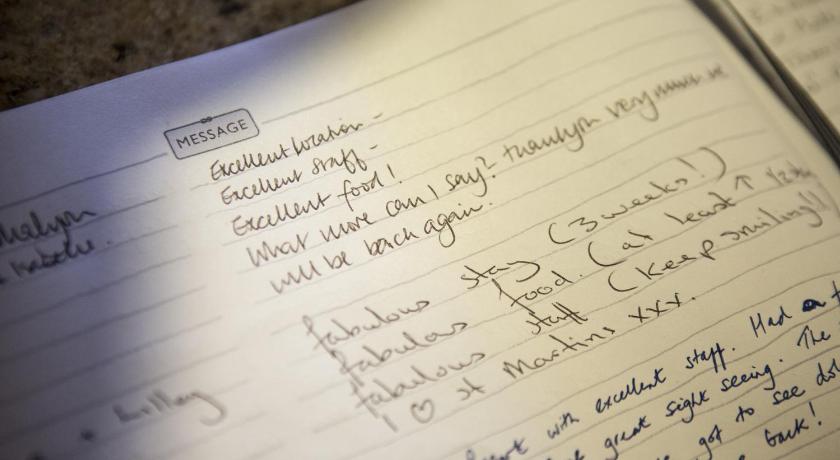 MESSAGE
Excellent location -
Excellent staff -
Excellent food!
What more can I say? thankyou very much we
will be back again.
fabulous stay (3 weeks!)
fabulous food. (at least ↑
fabulous staff (keep smiling!!
I ♡ St Martins xxx.
with excellent staff. Had a
great sight seeing. The
got to see
back!